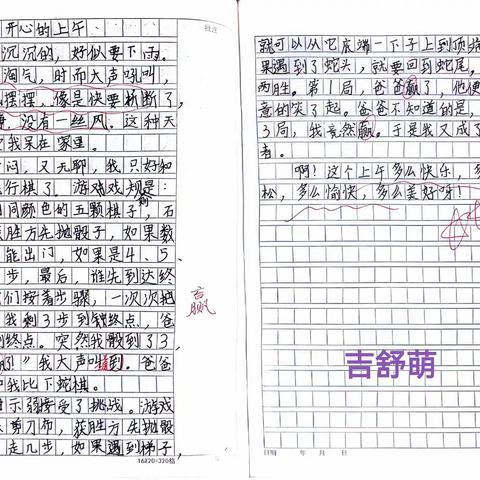 开心的上午
批注
沉沉的，好似要下雨。
淘气，时而大声吼叫，
摆摆，像是快要折断了，
没有一丝风。这种天
我呆在家里。
闷，又无聊，我只好和
行棋了。游戏规
同颜色的五颗棋子，石
胜方先抛骰子，如果数
能出门，如果是4、5、
步，最后，谁先到达终
们按着步骤，一次次把
我剩3步到终点，爸
终点。突然我骰到了3，
了！”我大声叫道。爸爸
我比下蛇棋。
示弱接受了挑战。游戏
剪刀布，获胜方先抛骰
走几步，如果遇到梯子，
赢
16×20=320格
就可以从它底端一下子上到顶端
果遇到了蛇头，就要回到蛇尾，
两胜。第1局，爸爸赢了，他便
意的笑了起。爸爸不知道的是，
3局，我竟然赢。于是我又成了
者。
啊！这个上午多么快乐，多
松，多么愉快，多么美好呀！
吉舒萌
日期 年 月 日